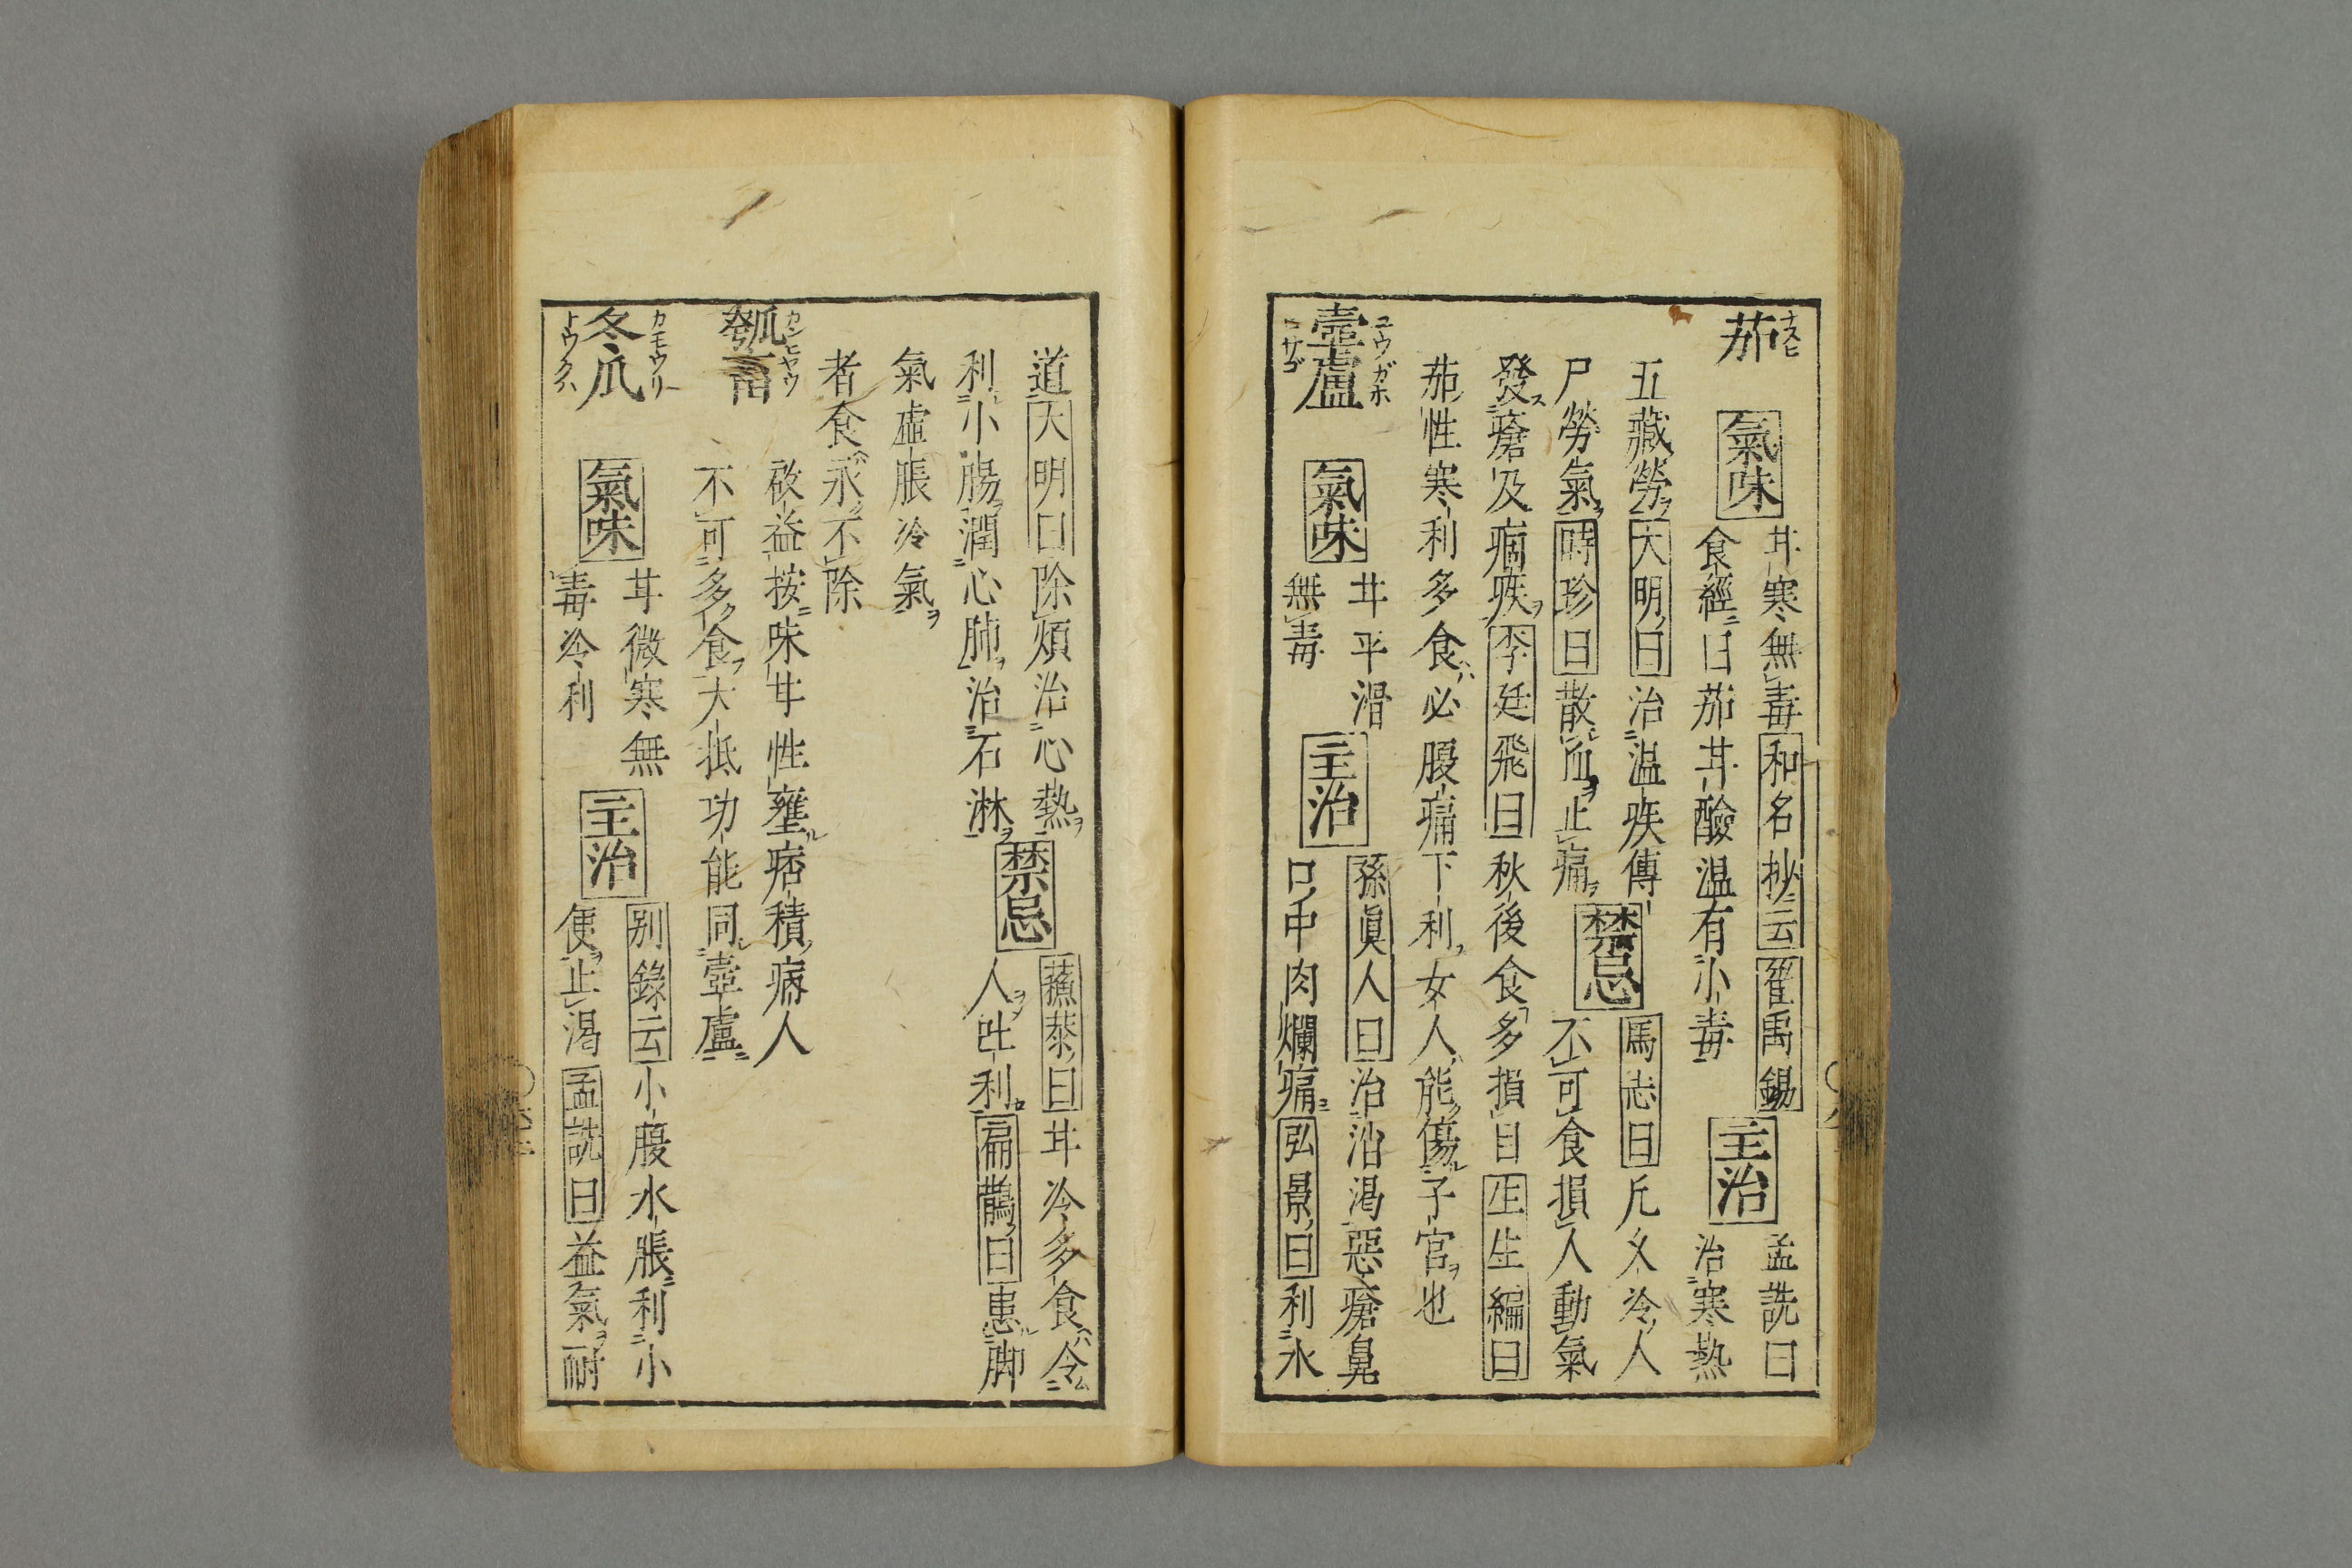 茄 ナスビ
氣味
甘寒無毒和名抄云崔禹錫
食經曰茄甘醶温有小毒
主治
孟詵曰
治寒熱
五藏勞大明曰治温疾傳
尸勞氣時珍曰散血止痛
禁忌
馬志曰凡久冷人
不可食損人動氣
發瘡及痼疾李廷飛曰秋後食多損目生生編曰
茄性寒利多食必腹痛下利女人能傷子宮也
壺盧 ユウガホ
氣味
甘平滑
無毒
主治
孫真人曰治消渇惡瘡鼻
口中肉爛痛弘景曰利水
道大明曰除煩治心熱
利小腸潤心肺治石淋
禁忌
蘓恭曰甘冷多食令
人吐利扁鵲曰患脚
氣虚脹冷氣
者食永不除
瓠畜 カンヒヤウ
啟益按味甘性壅痞積病人
不可多食大抵功能同壺盧
冬瓜 カモウリ トウクハ
氣味
甘微寒無
毒冷利
主治
別錄云小腹水脹利小
便止渇孟詵曰益氣耐